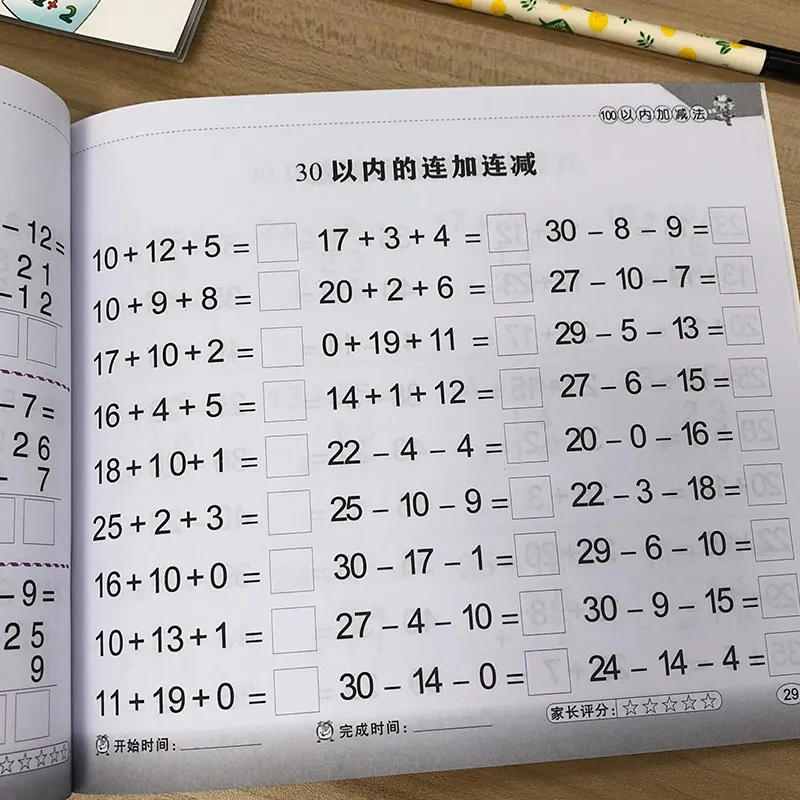 1+2
100以内加减法
30以内的连加连减
10+12+5= 17+3+4= 30-8-9=
10+9+8= 20+2+6= 27-10-7=
17+10+2= 0+19+11= 29-5-13=
16+4+5= 14+1+12= 27-6-15=
18+10+1= 22-4-4= 20-0-16=
25+2+3= 25-10-9= 22-3-18=
16+10+0= 30-17-1= 29-6-10=
10+13+1= 27-4-10= 30-9-15=
11+19+0= 30-14-0= 24-14-4=
开始时间: 完成时间: 家长评分:☆☆☆☆☆
29
-12=
21
-12
-7=
26
- 7
-9=
25
9
☆☆☆☆☆